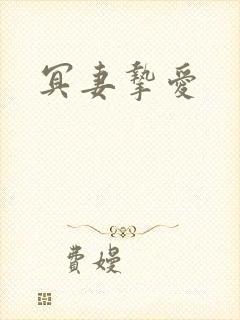 冥妻摯愛
費嫚